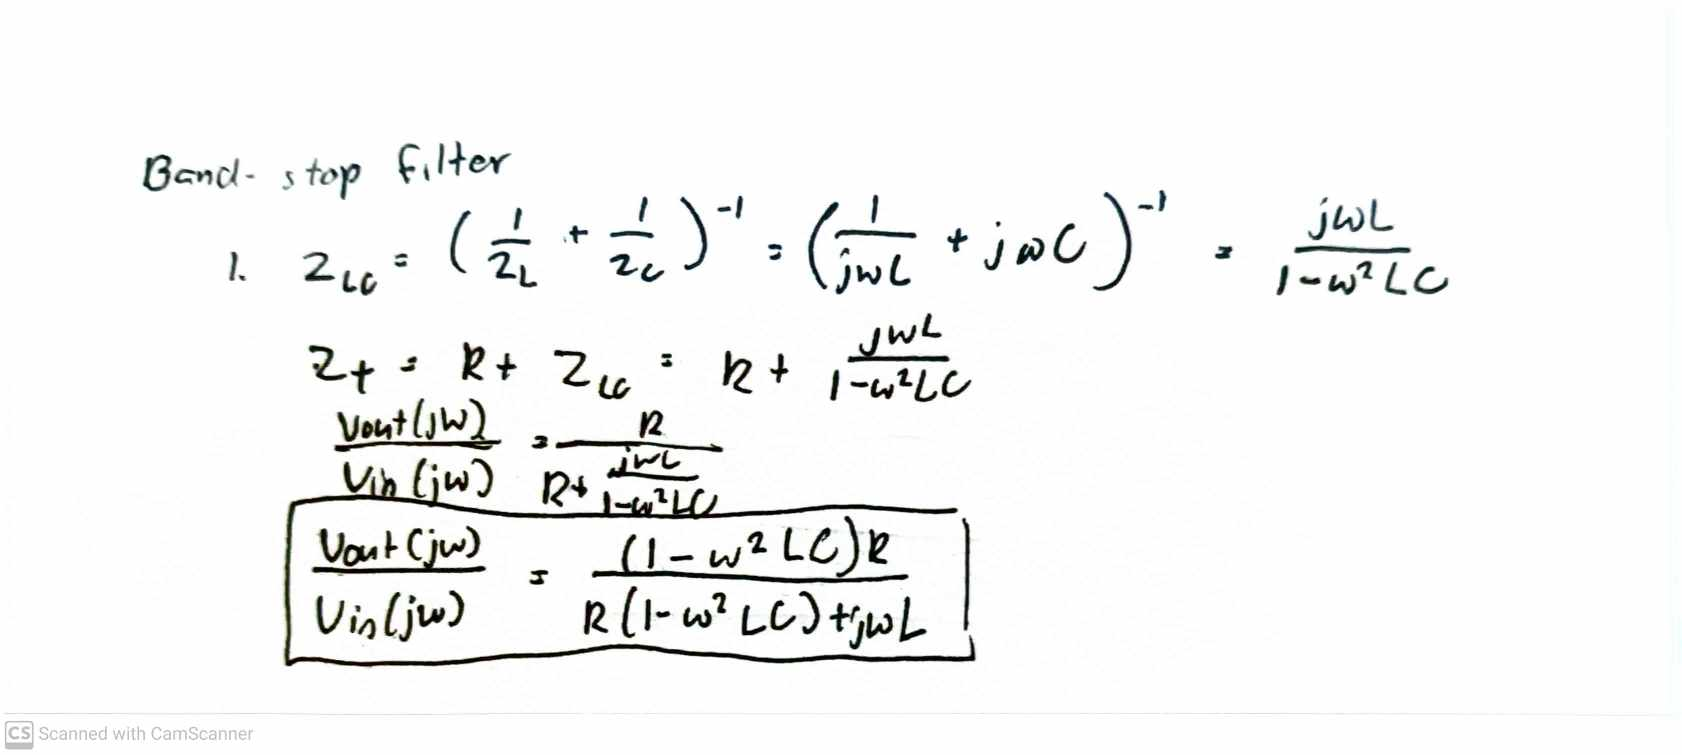 Band-stop filter
1. Z_LC = (1/Z_L + 1/Z_C)^-1 = (1/jωL + jωC)^-1 = jωL/(1-ω²LC)
Z_t = R + Z_LC = R + jωL/(1-ω²LC)
Vout(jω)/Vin(jω) = R/(R + jωL/(1-ω²LC))
Vout(jω)/Vin(jω) = (1-ω²LC)R/(R(1-ω²LC)+jωL)
CS Scanned with CamScanner